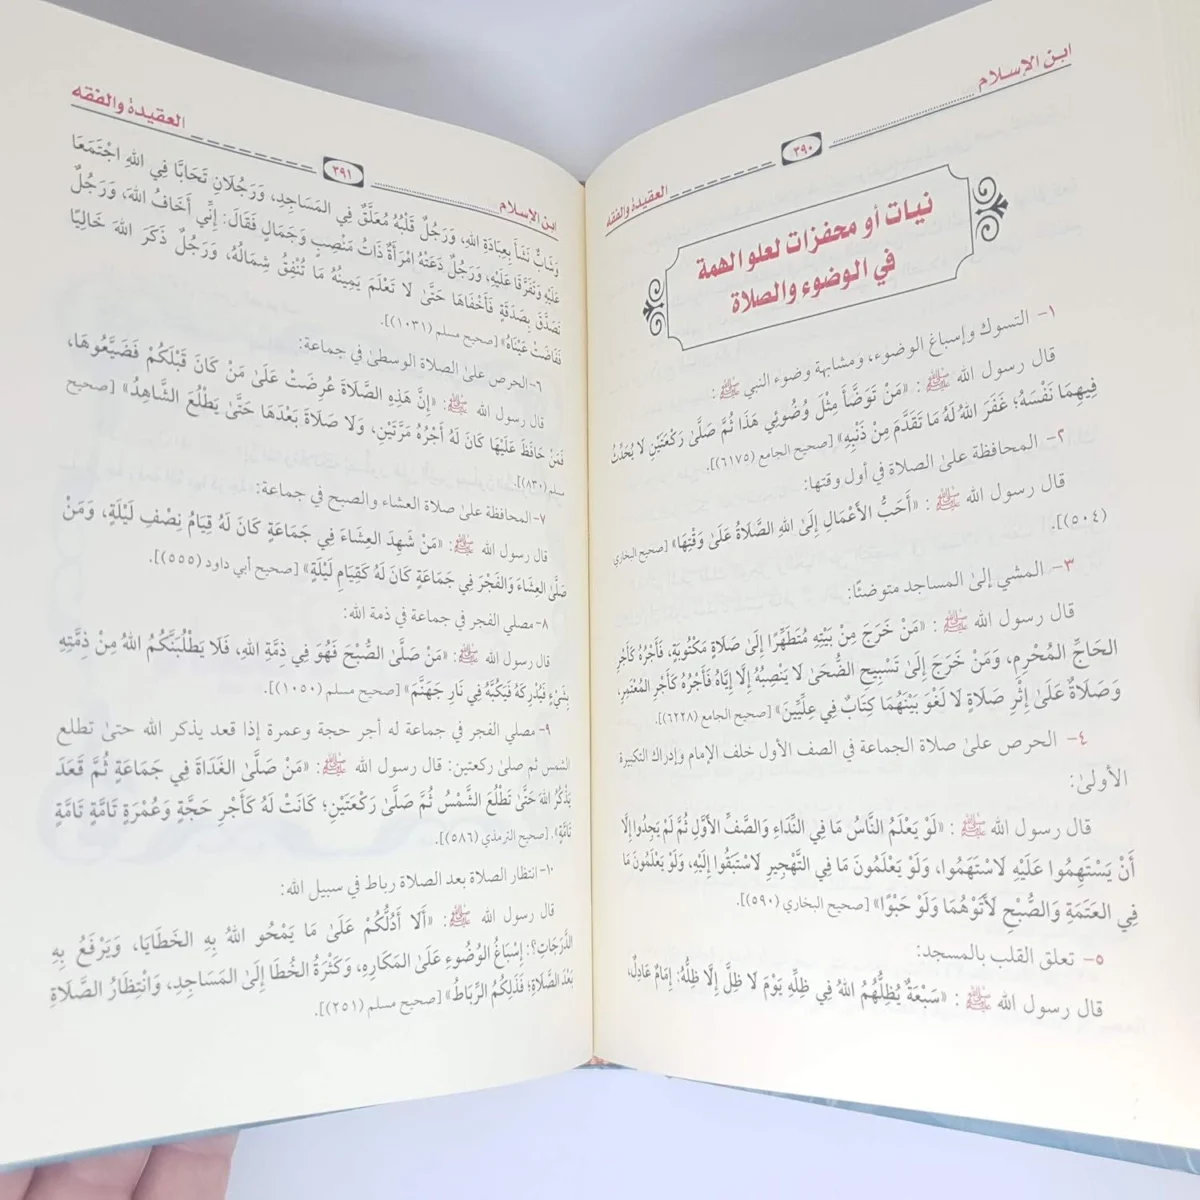 ابن الإسلام
٣٩٠
العقيدة والفقه
نيات أو محفزات لعلو الهمة
في الوضوء والصلاة
١- التسوك وإسباغ الوضوء، ومشابهة وضوء النبي ﷺ :
قال رسول الله ﷺ : «مَنْ تَوَضَّأَ مِثْلَ وُضُوئِي هَذَا ثُمَّ صَلَّى رَكْعَتَيْنِ لا يُحَدِّثُ
فِيهِمَا نَفْسَهُ؛ غَفَرَ اللهُ لَهُ مَا تَقَدَّمَ مِنْ ذَنْبِهِ» [صحيح الجامع (٦١٧٥)].
٢- المحافظة على الصلاة في أول وقتها:
قال رسول الله ﷺ : «أَحَبُّ الأَعْمَالِ إِلَى اللهِ الصَّلاةُ عَلَى وَقْتِهَا» [صحيح البخاري
(٥٠٤)].
٣- المشي إلى المساجد متوضئًا:
قال رسول الله ﷺ : «مَنْ خَرَجَ مِنْ بَيْتِهِ مُتَطَهِّرًا إِلَى صَلاةٍ مَكْتُوبَةٍ، فَأَجْرُهُ كَأَجْرِ
الحَاجِّ المُحْرِمِ، وَمَنْ خَرَجَ إِلَى تَسْبِيحِ الضُّحَى لا يَنْصِبُهُ إِلَّا إِيَّاهُ فَأَجْرُهُ كَأَجْرِ المُعْتَمِرِ،
وَصَلاةٌ عَلَى إِثْرِ صَلاةٍ لا لَغْوَ بَيْنَهُمَا كِتَابٌ فِي عِلِّيِّينَ» [صحيح الجامع (٦٢٢٨)].
٤- الحرص على صلاة الجماعة في الصف الأول خلف الإمام وإدراك التكبيرة
الأولى:
قال رسول الله ﷺ : «لَوْ يَعْلَمُ النَّاسُ مَا فِي النِّدَاءِ وَالصَّفِّ الأَوَّلِ ثُمَّ لَمْ يَجِدُوا إِلَّا
أَنْ يَسْتَهِمُوا عَلَيْهِ لاسْتَهَمُوا، وَلَوْ يَعْلَمُونَ مَا فِي التَّهْجِيرِ لاسْتَبَقُوا إِلَيْهِ، وَلَوْ يَعْلَمُونَ مَا
فِي العَتَمَةِ وَالصُّبْحِ لَأَتَوْهُمَا وَلَوْ حَبْوًا» [صحيح البخاري (٥٩٠)].
٥- تعلق القلب بالمسجد:
قال رسول الله ﷺ : «سَبْعَةٌ يُظِلُّهُمُ اللهُ فِي ظِلِّهِ يَوْمَ لا ظِلَّ إِلَّا ظِلُّهُ: إِمَامٌ عَادِلٌ،
ابن الإسلام
٣٩١
العقيدة والفقه
وَشَابٌّ نَشَأَ بِعِبَادَةِ اللهِ، وَرَجُلٌ قَلْبُهُ مُعَلَّقٌ فِي المَسَاجِدِ، وَرَجُلانِ تَحَابَّا فِي اللهِ اجْتَمَعَا
عَلَيْهِ وَتَفَرَّقَا عَلَيْهِ، وَرَجُلٌ دَعَتْهُ امْرَأَةٌ ذَاتُ مَنْصِبٍ وَجَمَالٍ فَقَالَ: إِنِّي أَخَافُ اللهَ، وَرَجُلٌ
تَصَدَّقَ بِصَدَقَةٍ فَأَخْفَاهَا حَتَّى لا تَعْلَمَ يَمِينُهُ مَا تُنْفِقُ شِمَالُهُ، وَرَجُلٌ ذَكَرَ اللهَ خَالِيًا
فَفَاضَتْ عَيْنَاهُ» [صحيح مسلم (١٠٣١)].
٦- الحرص على الصلاة الوسطى في جماعة:
قال رسول الله ﷺ: «إِنَّ هَذِهِ الصَّلاةَ عُرِضَتْ عَلَى مَنْ كَانَ قَبْلَكُمْ فَضَيَّعُوهَا،
فَمَنْ حَافَظَ عَلَيْهَا كَانَ لَهُ أَجْرُهُ مَرَّتَيْنِ، وَلا صَلاةَ بَعْدَهَا حَتَّى يَطْلُعَ الشَّاهِدُ» [صحيح
مسلم (٨٣٠)].
٧- المحافظة على صلاة العشاء والصبح في جماعة:
قال رسول الله ﷺ: «مَنْ شَهِدَ العِشَاءَ فِي جَمَاعَةٍ كَانَ لَهُ قِيَامُ نِصْفِ لَيْلَةٍ، وَمَنْ
صَلَّى العِشَاءَ وَالفَجْرَ فِي جَمَاعَةٍ كَانَ لَهُ كَقِيَامِ لَيْلَةٍ» [صحيح أبي داود (٥٥٥)].
٨- مصلي الفجر في جماعة في ذمة الله:
قال رسول الله ﷺ: «مَنْ صَلَّى الصُّبْحَ فَهُوَ فِي ذِمَّةِ اللهِ، فَلَا يَطْلُبَنَّكُمُ اللهُ مِنْ ذِمَّتِهِ
بِشَيْءٍ فَيُدْرِكَهُ فَيَكُبَّهُ فِي نَارِ جَهَنَّمَ» [صحيح مسلم (١٠٥٠)].
٩- مصلي الفجر في جماعة له أجر حجة وعمرة إذا قعد يذكر الله حتى تطلع
الشمس ثم صلى ركعتين: قال رسول الله ﷺ: «مَنْ صَلَّى الغَدَاةَ فِي جَمَاعَةٍ ثُمَّ قَعَدَ
يَذْكُرُ اللهَ حَتَّى تَطْلُعَ الشَّمْسُ ثُمَّ صَلَّى رَكْعَتَيْنِ؛ كَانَتْ لَهُ كَأَجْرِ حَجَّةٍ وَعُمْرَةٍ تَامَّةٍ تَامَّةٍ
تَامَّةٍ». [صحيح الترمذي (٥٨٦)].
١٠- انتظار الصلاة بعد الصلاة رباط في سبيل الله:
قال رسول الله ﷺ: «أَلَا أَدُلُّكُمْ عَلَى مَا يَمْحُو اللهُ بِهِ الخَطَايَا، وَيَرْفَعُ بِهِ
الدَّرَجَاتِ؟: إِسْبَاغُ الوُضُوءِ عَلَى المَكَارِهِ، وَكَثْرَةُ الخُطَا إِلَى المَسَاجِدِ، وَانْتِظَارُ الصَّلاةِ
بَعْدَ الصَّلاةِ؛ فَذَلِكُمُ الرِّبَاطُ» [صحيح مسلم (٢٥١)].